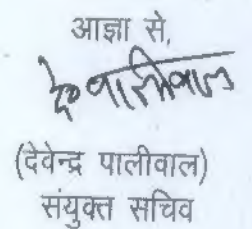 आज्ञा से,
दे० पालीवाल
(देवेन्द्र पालीवाल)
संयुक्त सचिव